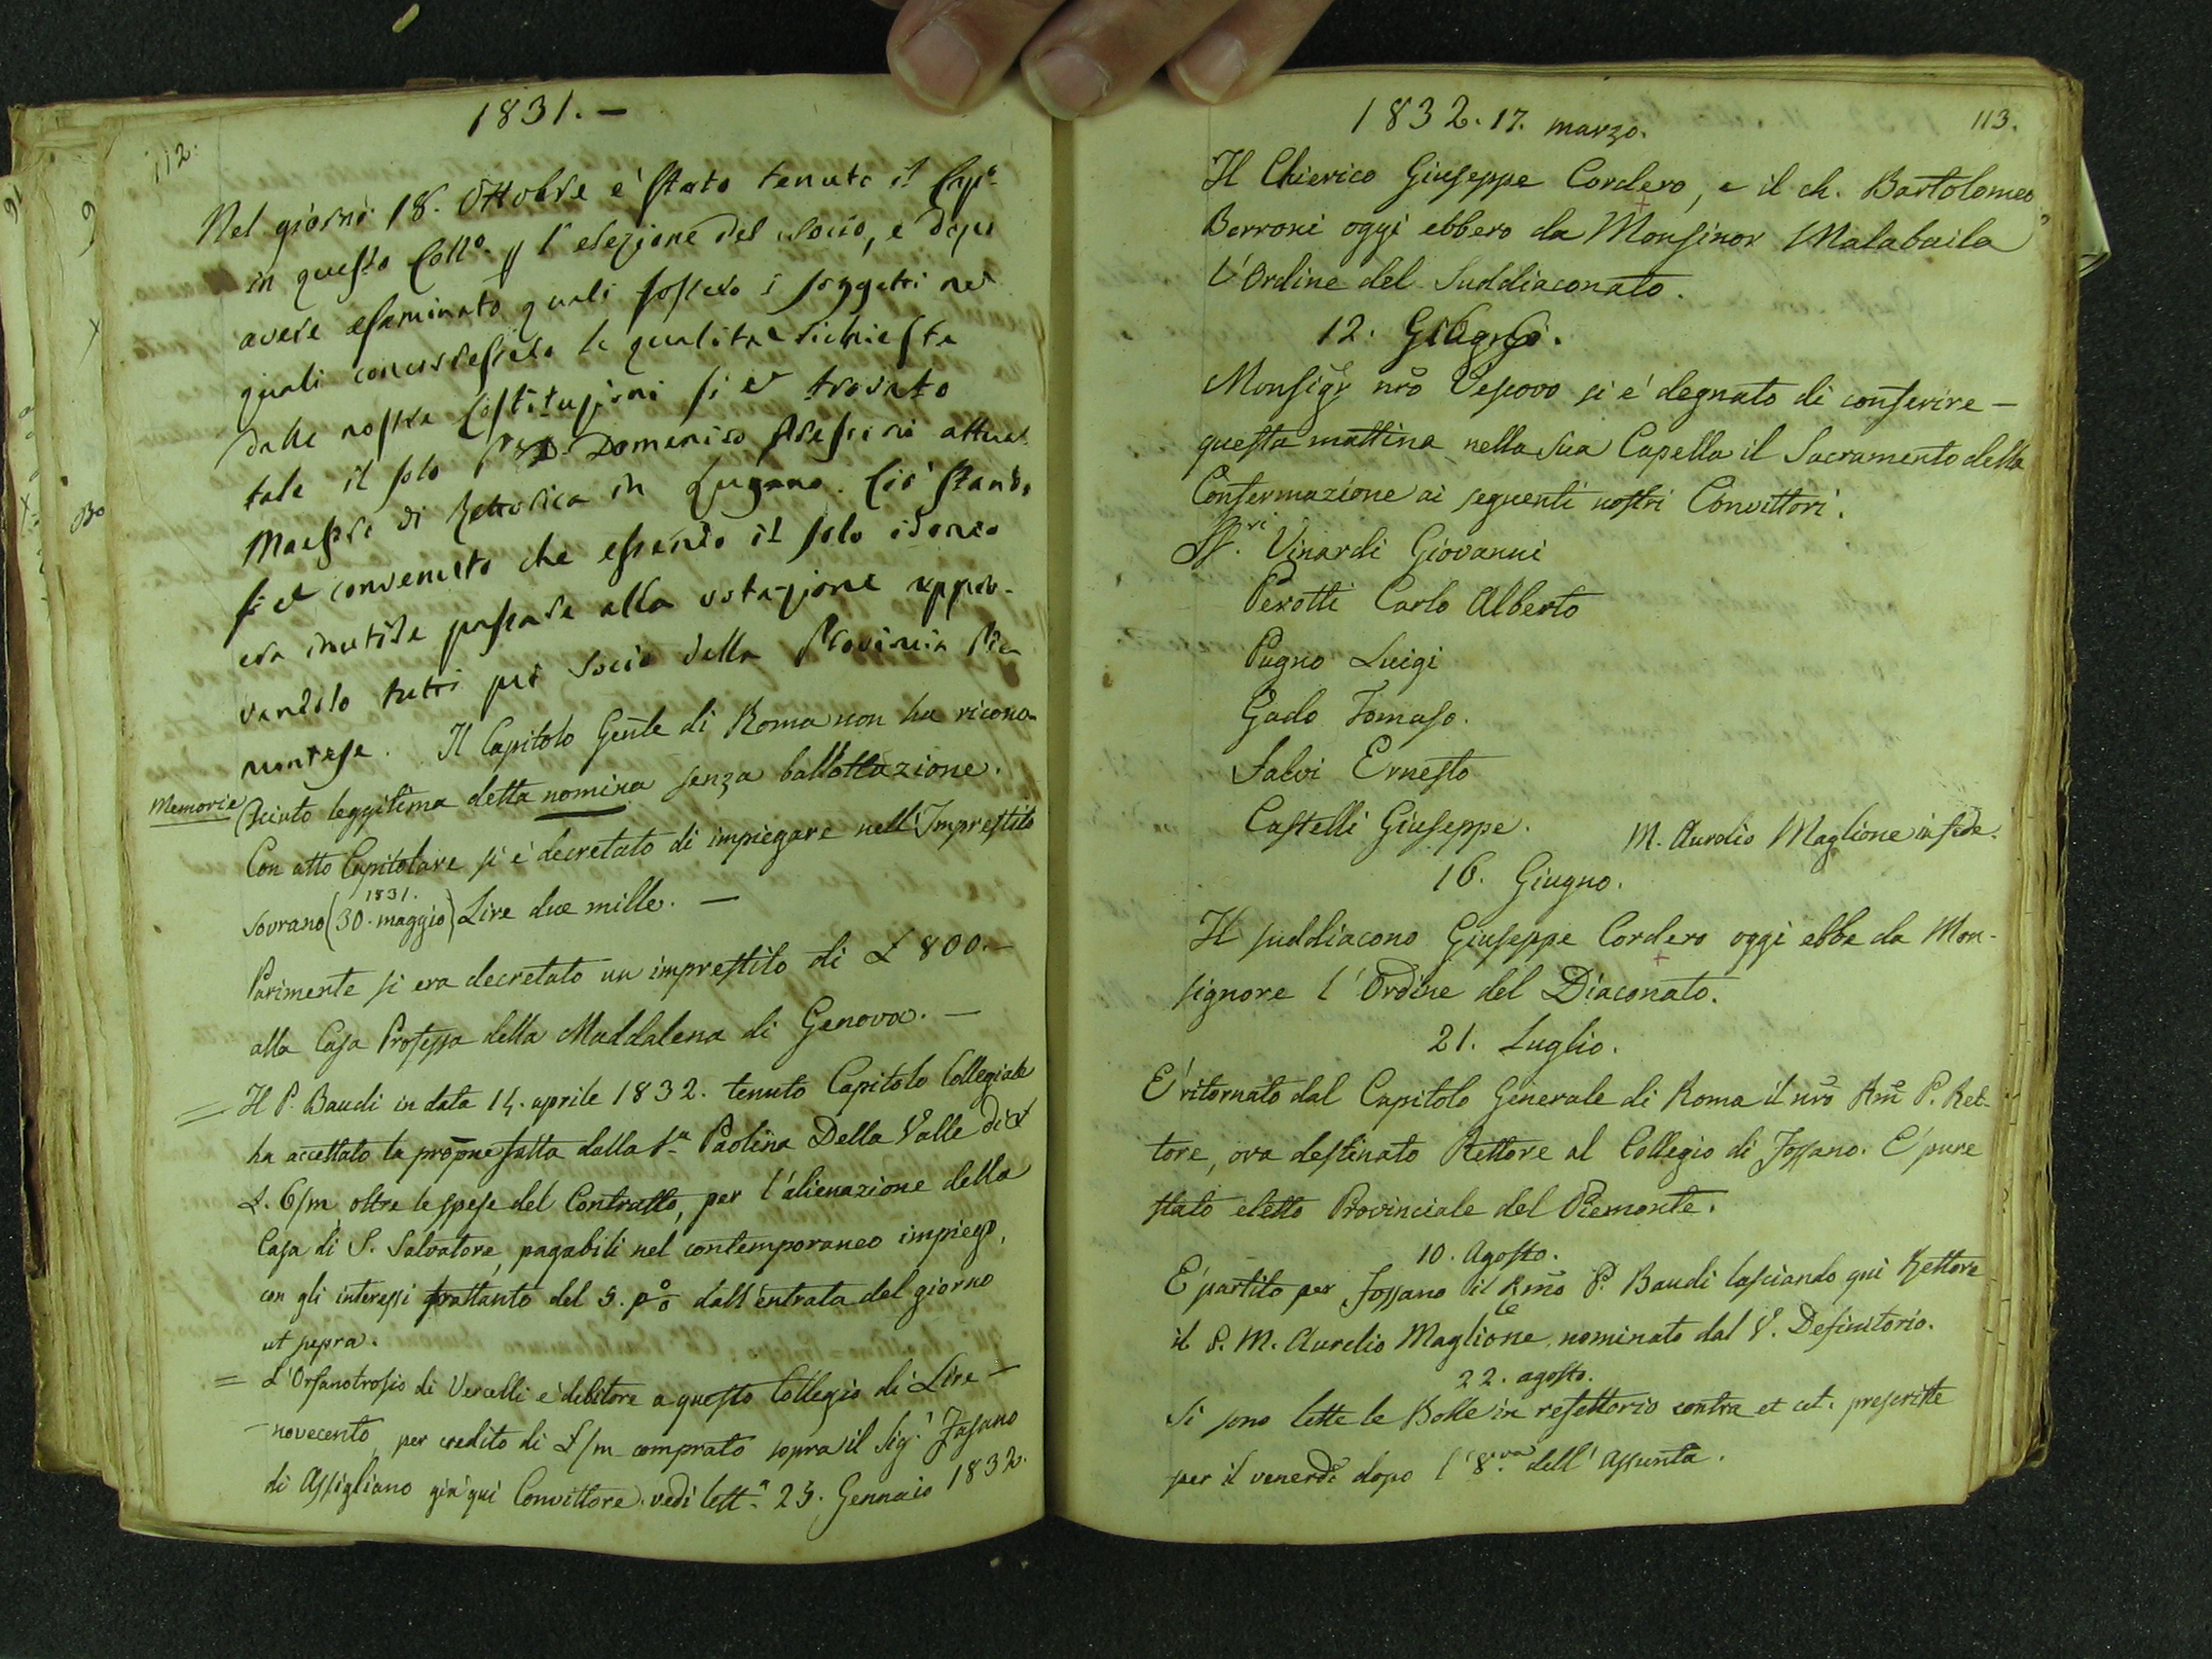 112.
1831. -
Nel giorno 18. Ottobre è stato tenuto il Cap.º
in questo Coll.º p l'elezione del Socio, e dopo
avere esaminato quali fossero i soggetti nei
quali concorressero le qualita richieste
dalle nostre Costituzioni si è trovato
tale il solo P. D. Domenico attual
Maestro di Rettorica in Lugano. Ciò stando
si è convenuto che essendo il solo idoneo
era inutile passare alla votazione appro-
vandolo tutti per Socio della Provincia Pie
montese. Il Capitolo Gen̄le di Roma non ha ricono-
Memorie sciuto leggitima detta nomina senza ballottazione.
Con atto Capitolare si è decretato di impiegare nell'Imprestito
Sovrano (30. maggio 1831.) Lire due mille. -
Parimente si era decretato un imprestito di £ 800. -
alla Casa Professa della Maddalena di Genova. -
= Il P. Baudi in data 14. aprile 1832. tenuto Capitolo Collegiale
ha accettato la prop̄ne fatta dalla S.ra Paolina Della Valle di
£. 6/m oltre le spese del Contratto, per l'alienazione della
Casa di S. Salvatore, pagabili nel contemporaneo impiego,
con gli interessi frattanto del 5. p% dall'entrata del giorno
ut sopra.
= L'Orfanotrofio di Vercelli è debitore a questo Collegio di Lire -
- novecento per credito di £/m comprato sopra il Sig.r Fasano
di Assigliano già qui Convittore. vedi lett.a 25. Gennaio 1832.
113.
1832. 17. marzo.
Il Chierico Giuseppe Cordero, e il ch. Bartolomeo
Berroni oggi ebbero da Monsinor Malabaila
l'Ordine del Suddiaconato.
12. Giugno.
Monsig.r nr̄o Vescovo si è degnato di conferire -
questa mattina nella sua Capella il Sacramento della
Confermazione ai seguenti nostri Convittori.
SS.ri Vinardi Giovanni
Perotti Carlo Alberto
Pugno Luigi
Gado Tomaso.
Salvi Ernesto
Castelli Giuseppe. M. Aurelio Maglione in fede.
16. Giugno.
Il suddiacono Giuseppe Cordero oggi ebbe da Mon-
signore l'Ordine del Diaconato.
21. Luglio.
E' ritornato dal Capitolo Generale di Roma il nr̄o Rm̄o P. Ret-
tore, ora destinato Rettore al Collegio di Fossano. E' pure
stato eletto Provinciale del Piemonte.
10. Agosto.
E' partito per Fossano il Rm̄o P. Baudi lasciando qui Rettore
il P. M. Aurelio Maglione nominato dal V. Definitorio.
22. agosto.
Si sono lette le Bolle in refettorio contra et cet. prescritte
per il venerdì dopo l'8.va dell'Assunta.